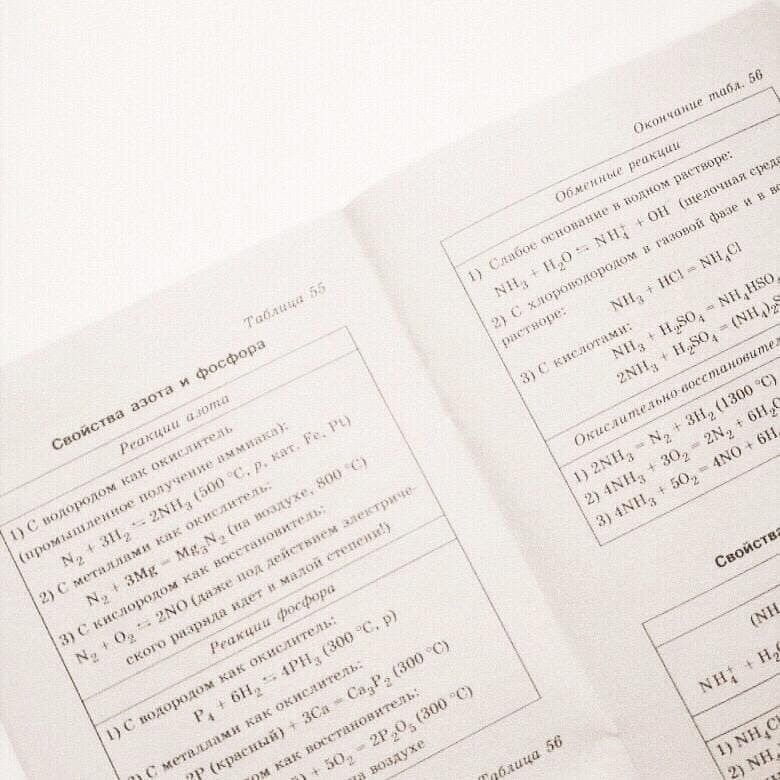 Таблица 55
Свойства азота и фосфора
Реакции азота
1) С водородом как окислитель
(промышленное получение аммиака):
N₂ + 3H₂ ⇆ 2NH₃ (500 °C, p, кат. Fe, Pt)
2) С металлами как окислитель:
N₂ + 3Mg = Mg₃N₂ (на воздухе, 800 °C)
3) С кислородом как восстановитель:
N₂ + O₂ ⇆ 2NO (даже под действием электриче-
ского разряда идет в малой степени!)
Реакции фосфора
1) С водородом как окислитель:
P₄ + 6H₂ ⇆ 4PH₃ (300 °C, p)
С металлами как окислитель:
2P (красный) + 3Ca = Ca₃P₂ (300 °C)
как восстановитель:
+ 5O₂ = 2P₂O₅ (300 °C)
воздухе
Таблица 56
Окончание табл. 56
Обменные реакции
1) Слабое основание в водном растворе:
NH₃ + H₂O ⇆ NH₄⁺ + OH⁻ (щелочная
2) С хлороводородом в газовой фазе и в
растворе:
NH₃ + HCl = NH₄Cl
3) С кислотами:
NH₃ + H₂SO₄ = NH₄HSO₄
2NH₃ + H₂SO₄ = (NH₄)₂
1) 2NH₃ = N₂ + 3H₂ (1300 °C)
2) 4NH₃ + 3O₂ = 2N₂ + 6H₂O
3) 4NH₃ + 5O₂ = 4NO + 6H
(NH
NH₄⁺ + H₂
1) NH₄C
2) NH₄